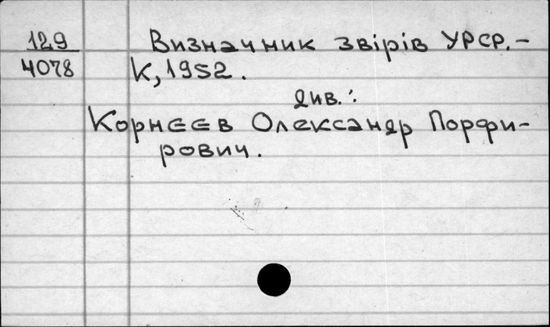 129
4078
Визначник звірів УРСР. –
К, 1952.
див.:
Корнєєв Олександр Порфи-
рович.